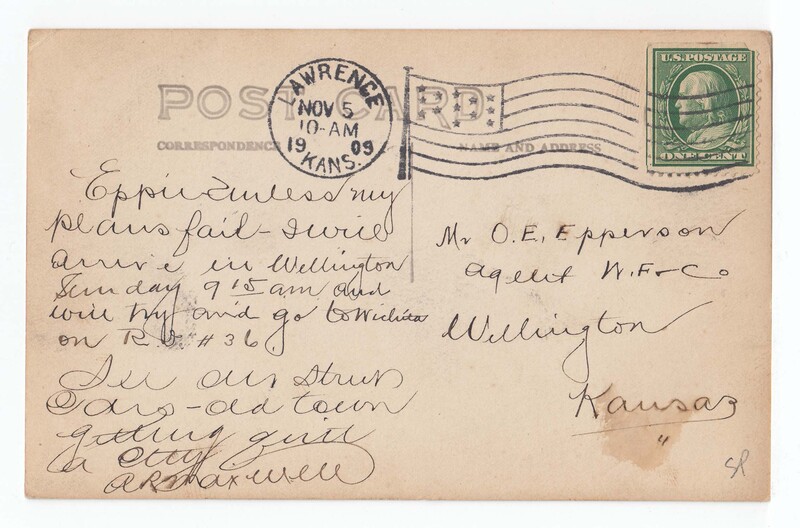 POST CARD
CORRESPONDENCE
NAME AND ADDRESS
LAWRENCE
NOV 5
10-AM
1909
KANS.
U.S. POSTAGE
ONE CENT
Eppie unless my
plans fail - I will
arrive in Wellington
Sunday 9 15 am and
will try and go to Wichita
on R.I. #36
See our Street
Cars - old town
getting quite
a City
A R Maxwell
Mr O.E. Epperson
agent W.F & Co
Wellington
Kansas
"